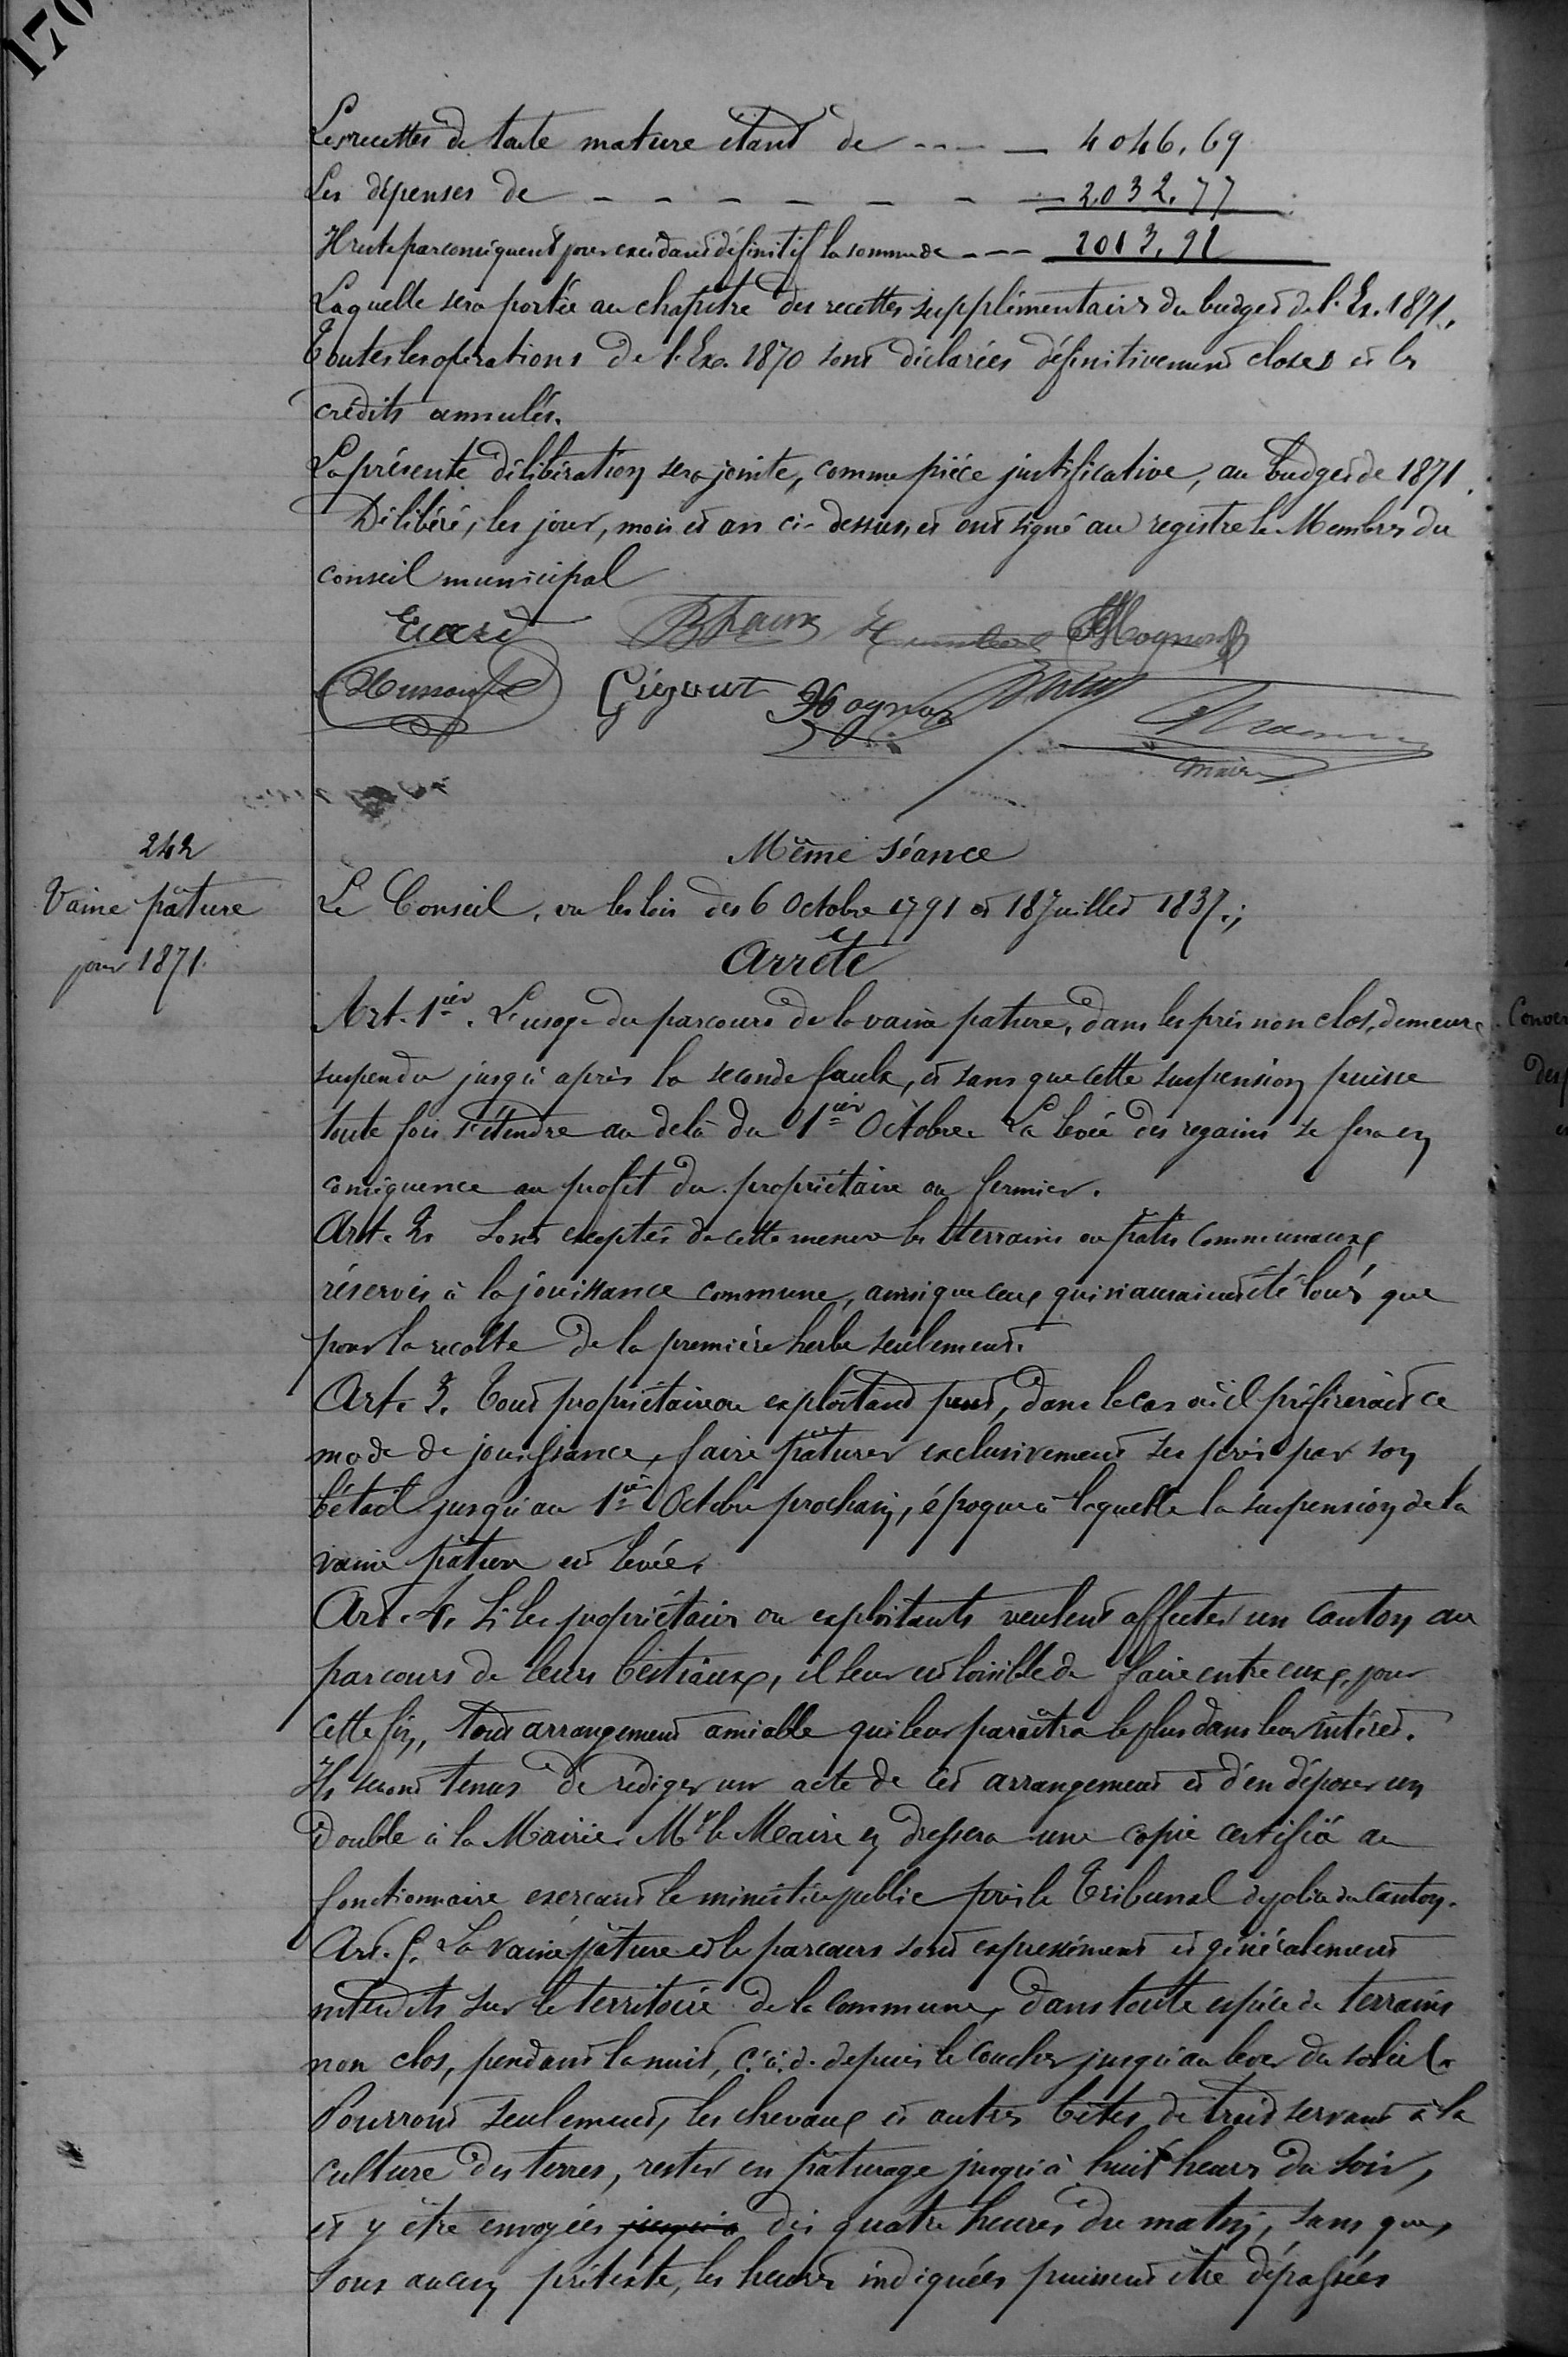 170
Les recettes de toute nature étant de ---- 4046.69
Les dépenses de - - - - - - - 2032.77
Il reste par conséquent pour excédant définitif la somme de --- 2013.92
Laquelle sera portée au chapitre des recettes supplémentaires du budget de l'Ex. 1871.
Toutes les opérations de l'Ex. 1870 sont déclarées définitivement closes et les
crédits annulés.
La présente délibération sera jointe, comme pièce justificative, au budget de 1871.
Délibéré, les jour, mois et an ci-dessus, et ont signé au registre les Membres du
conseil municipal
Hognon
Gigout Hognon
Maire
Même séance
242
Vaine pâture
pour 1871.
Le Conseil, vu les lois des 6 Octobre 1791 et 18 Juillet 1837.;
Arrête
Art. 1ier. L'usage du parcours de la vaine pature, dans les prés non clos, demeure
suspendu jusqu'après la seconde faulx, et sans que cette suspension puisse
toute fois s'étendre au delà du 1ier Octobre. La levée des regains se fera en
conséquence au profit du propriétaire ou fermier.
Art. 2. Sont exceptés de cette mesure les terrains ou patis communaux
réservés à la jouissance commune, ainsi que ceux qui n'auraient été loués que
pour la récolte de la première herbe seulement.
Art. 3. Tout propriétaire ou exploitant peut, dans le cas où il préfèrerait ce
mode de jouissance, faire pâturer exclusivement ses prés par son
bétail jusqu'au 1ier Octobre prochain, époque à laquelle la suspension de la
vaine pâture est levée.
Art. 4. Si les propriétaires ou exploitants veulent affecter un canton au
parcours de leurs bestiaux, il leur est loisible de faire entre eux, pour
cette fin, tout arrangement amiable qui leur paraîtra le plus dans leur intérêt.
Ils seront tenus de rédiger un acte de cet arrangement et d'en déposer un
double à la Mairie. Mr le Maire en dressera une copie certifiée au
fonctionnaire exerçant le ministère public près le Tribunal de police du Canton.
Art. 5. La vaine pâture et le parcours sont expressément et généralement
interdits sur le territoire de la commune, dans toute espèce de terrains
non clos, pendant la nuit, c.à.d. depuis le coucher jusqu'au lever du soleil.
Pourront seulement, les chevaux et autres bêtes de trait servant à la
culture des terres, rester en pâturage jusqu'à huit heures du soir,
et y être envoyées jusqu'à dès quatre heures du matin, sans que,
sous aucun prétexte, les heures indiquées puissent être dépassées